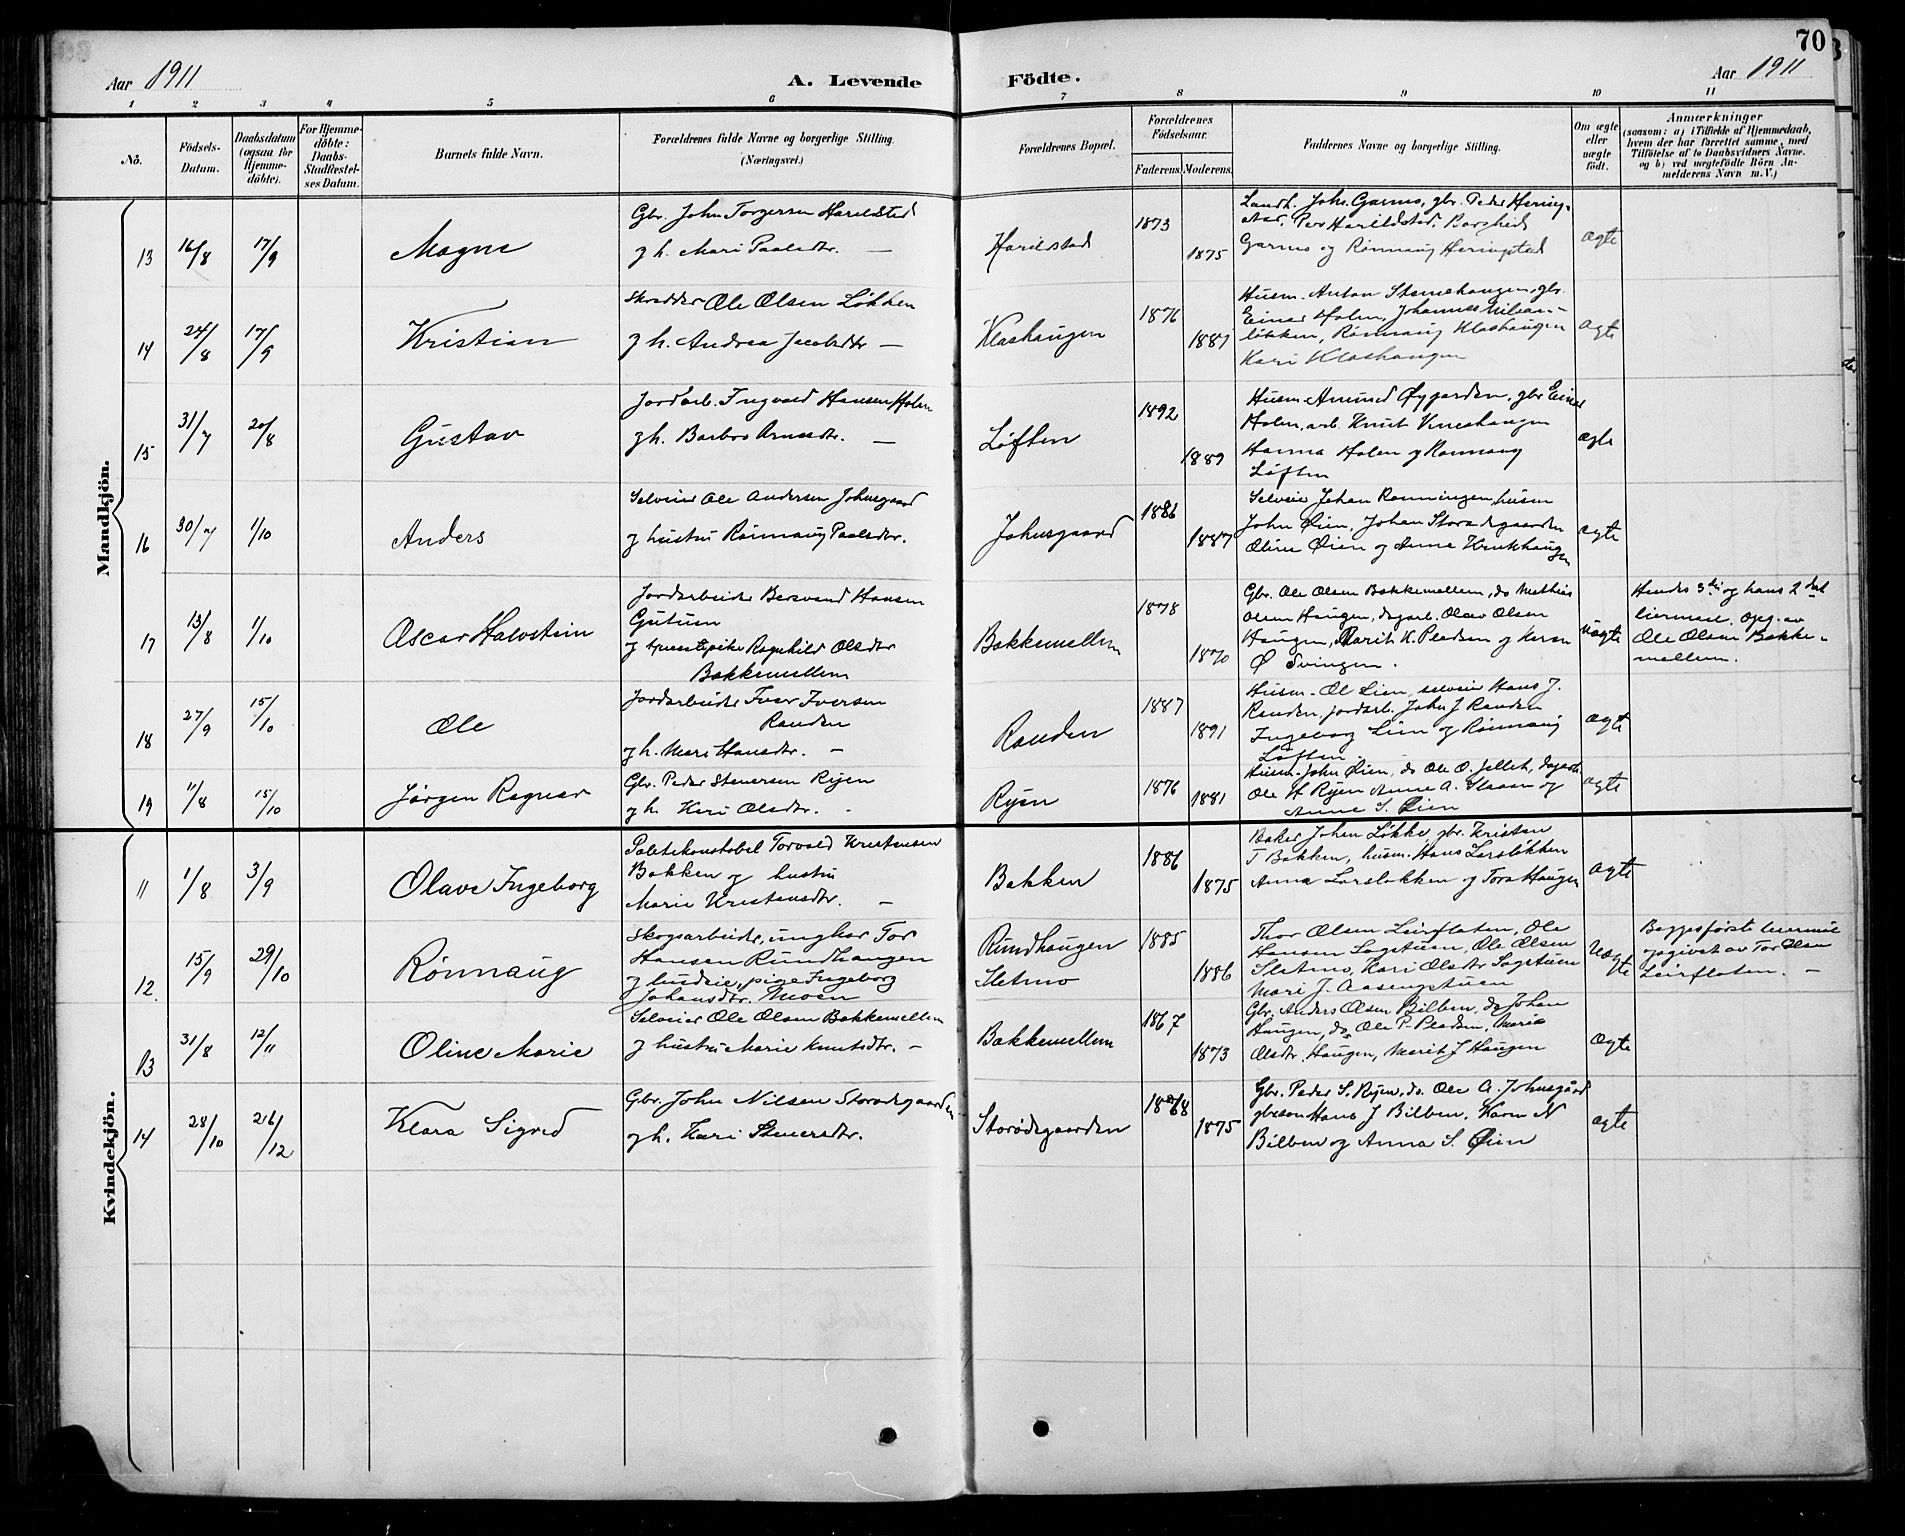 70
Aar 1911
A. Levende Födte.
Aar 1911
1 2 3 4 5 6 7 8 9 10 11
No.
Födsels-
Datum.
Daabsdatum
(ogsaa for
Hjemme-
döbte).
For Hjemme-
döbte:
Daabs-
Stadfæstel-
ses Datum.
Barnets fulde Navn.
Forældrenes fulde Navne og borgerlige Stilling.
(Næringsvei.)
Forældrenes Bopæl.
Forældrenes
Födselsaar.
Faderens. Moderens.
Faddernes Navne og borgerlige Stilling.
Om ægte
eller
uægte
födt.
Anmærkninger
(saasom: a) i Tilfælde af Hjemmedaab,
hvem der har forrettet samme, med
Tilföielse af to Daabsvidners Navne,
og b) ved uægtefödte Börn An-
melderens Navn m. V.)
Mandkjön.
13 16/8 17/9 Magne
Gbr. John Torgersen Harildstad
g h. Mari Paalsdtr. —
Harildstad
1873
1875
Landh. Joh. Garmo, gbr. Peder Hering-
stad, Per Harildstad, Borghild
Garmo og Rønnaug Heringstad
ægte
14 24/8 17/9 Kristian
Skrædder Ole Olsen Løkken
g h. Andrea Jacobsdtr —
Klashaugen
1876
1881
Husm. Anton Stenehaugen, gbr.
Einar Holen, Johannes
løkken, Rønnaug Klashaugen
Kari Klashaugen
ægte
15 31/7 20/8 Gustav
Jordarb. Ingvald Hansen Holen
g h. Barbro Arnesdtr. —
Løften
1892
1889
Husm. Amund Øygarden, gbr Einar
Holen, arb. Knut Vineshaugen
Hanna Holen g Rønnaug
Løften
ægte
16 30/7 1/10 Anders
Selveier Ole Andersen Johnsgaard
g hustru Rønnaug Paalsdtr.
Johnsgaard
1886
1887
Selveier Johan Rønningen, husm
John Øien, Johan Storødegaarden
Oline Øien og Anne Krukhaugen
ægte
17 13/8 1/10 Oscar Halvstein
Jordarbeider Bersvend Hansen
Gutuen
g pike Ragnhild Olsdtr
Bakkemellem
Bakkemellem
1878
1870
Gbr. Ole Olsen Bakkemellem, do Mathias
Olsen Haugen, dagarb. Olav Olsen
Haugen, Marit K. Pladsen og Karen
Ø Svingen.
uægte
Hendes 3die og hans 2det
leiermaal. Opg. av
Ole Olsen Bakke-
mellem.
18 27/9 15/10 Ole
Jordarbeider Iver Iversen
Randen
g h. Mari Hansdtr. —
Randen
1887
1891
Husm. Ol Lien, selveier Hans J.
Randen, jordarb. John J Randen
Ingeborg Lien og Rønnaug
Løften
ægte
19 11/8 15/10 Jørgen Ragnar
Gbr. Peder Stenersen Ryen
g h. Kari Olsdtr. —
Ryen
1876
1881
Husm. John Øien, do Ole O. Jellet, dagarb.
Ole H Ryen Anne A. Slaaen og
Anna S. Øien
ægte
Kvindekjön.
11 1/8 3/9 Olave Ingeborg
Politikonstabel Torvald Kristensen
Bakken og hustru
Marie Kristensdtr. —
Bakken
1886
1875
Baker Johan Løkke, gbr. Kristen
T Bakken, husm. Hans Larsløkken
Anna Larsløkken og Tora Haugen
ægte
12. 15/9 29/10 Rønnaug
Skogsarbeider, ungkar Tor
Hansen Rundhaugen
g budeie, pige Ingeborg
Johansdtr. Moen
Rundhaugen
Sletmo
1885
1886
Thor Olsen Leirflaten, Ole
Hansen Sagstuen, Ole Olsen
Sletmo, Kari Olsdtr Sagstuen
Mari J. Aasengstuen
Uægte
Begges første leiermaal
opgivet av Tor Olsen
Leirflaten. —
13 31/8 12/11 Oline Marie
Selveier Ole Olsen Bakkemellem
g hustru Marie Knutsdtr. —
Bakkemellem
1867
1873
Gbr. Anders Olsen Bilben, do Johan
Haugen, do Ole P. Pladsen, Marie
Olsdtr. Haugen, Marit J Haugen
ægte
14 28/10 26/12 Klara Sigrid
Gbr. John Nilsen Storødegaarden
g h. Kari Stenersdtr.
Storødegaarden
1868
1875
Gbr. Peder S. Ryen, do. Ole A. Johnsgård
gbrsøn Hans J Bilben, Karen N
Bilben og Anna S. Øien
ægte